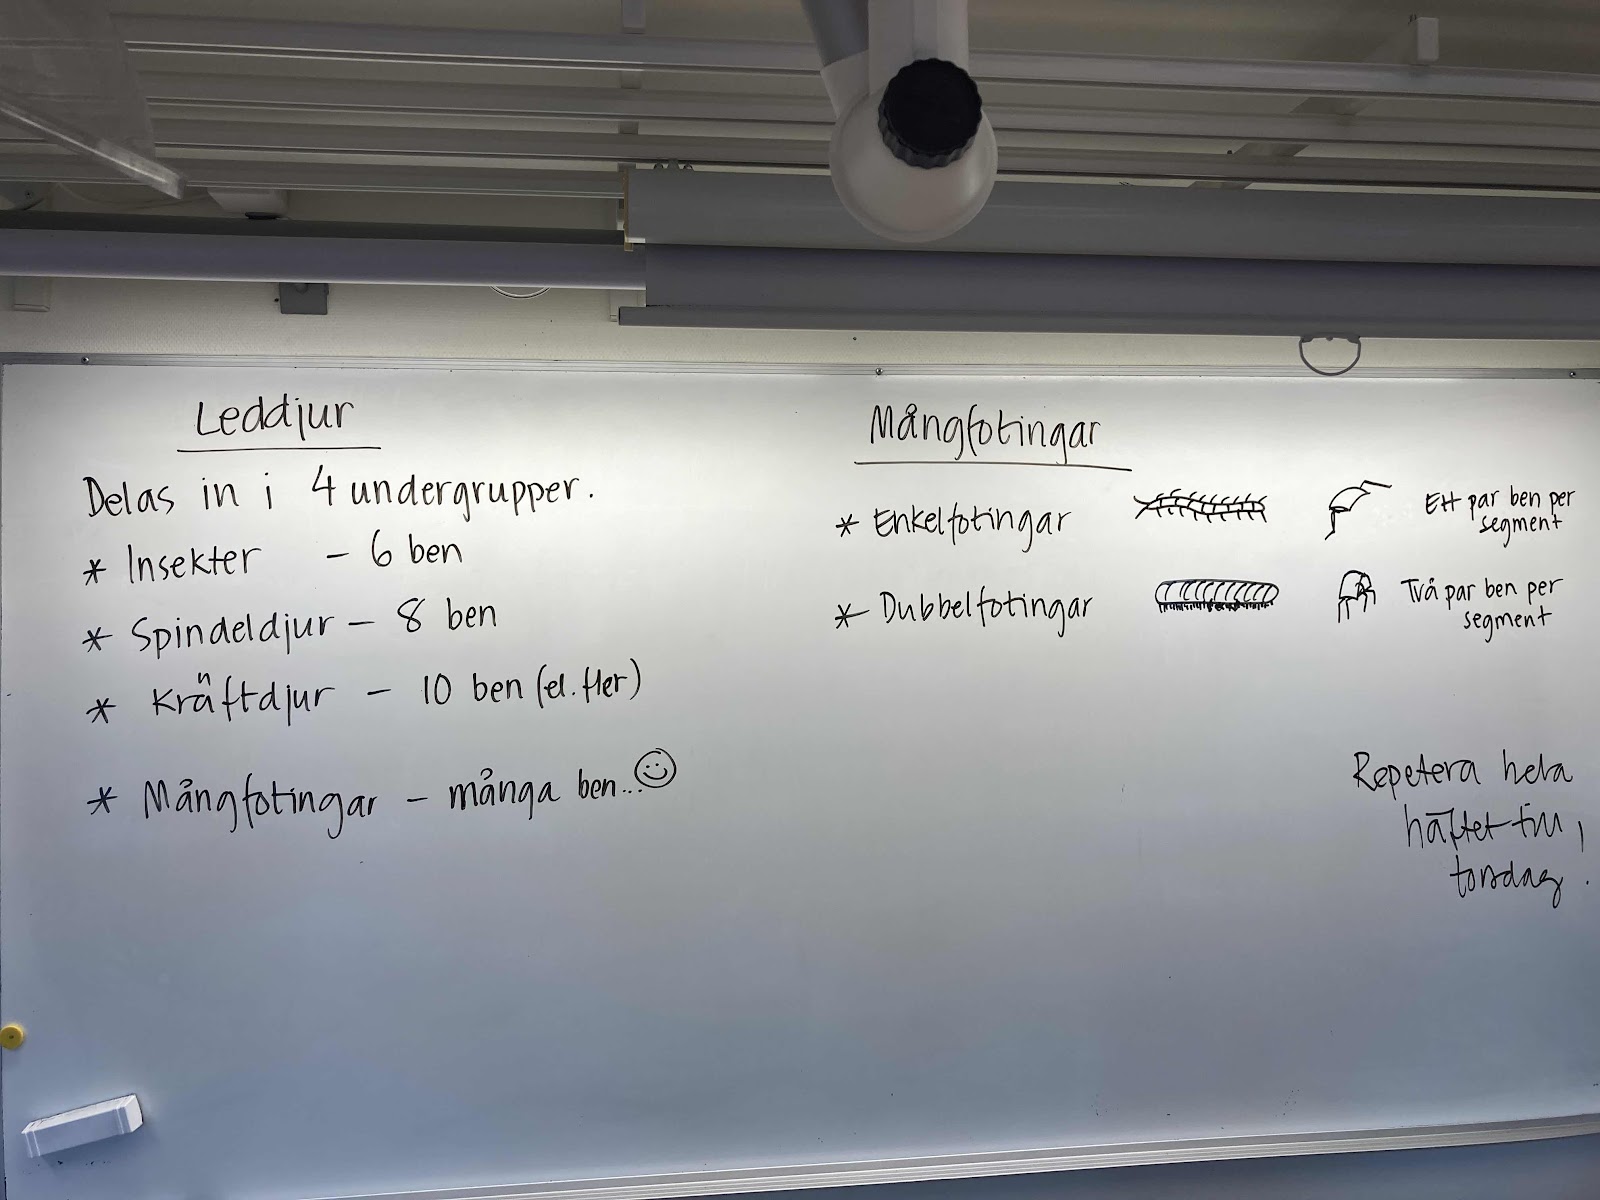 Leddjur
Delas in i 4 undergrupper.
* Insekter – 6 ben
* Spindeldjur – 8 ben
* Kräftdjur – 10 ben (el. fler)
* Mångfotingar – många ben...☺
Mångfotingar
* Enkelfotingar Ett par ben per
segment
* Dubbelfotingar Två par ben per
segment
Repetera hela
häftet till
torsdag.